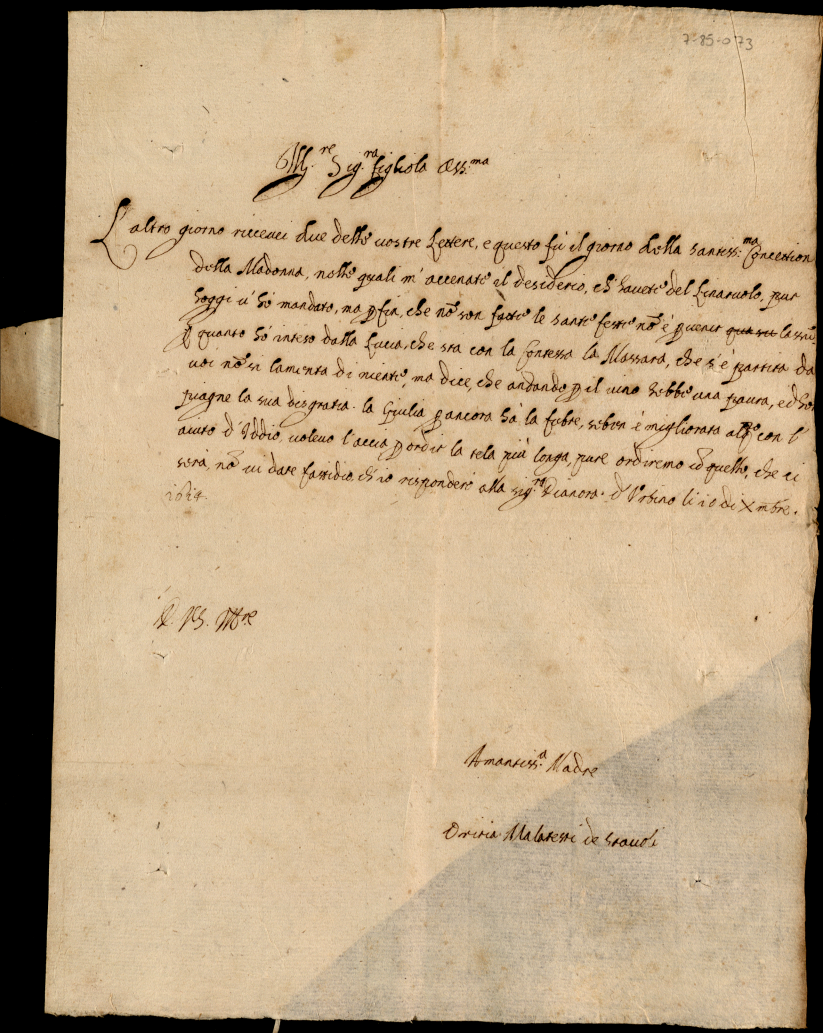 7-85-073
Ill.re Sig.ra figliola oss.ma
L'altro giorno riceuei due delle uostre lettere, e questo fù il giorno della santiss.ma Concettion
della Madonna, nelle quali m'accenate il desiderio, ch'hauete del linaruolo, pur
hoggi u'hò mandato, ma p fin, che nō son fatte le sante feste nō è p uenir
p quanto hò inteso dalla Lucia, che sta con la Contessa la Massara, che s'è partita da
uoi nō si lamenta di niente, ma dice, che andando p il uino hebbe una paura, ed hor
piagne la sua disgratia. la Giulia p ancora hà la febre, seben è migliorata alq.to con l'
aiuto d'Iddio, uoleuo l'accia p ordir la tela più longa, pure ordiremo cō quello, che ci
serà, nō ui date fastidio, ch'io risponderò alla sig.ra Dianora. d'Vrbino li 10 di Xmbre.
1614.
D. V.S. Ill.re
Amantiss.a Madre
Oritia Malatesti de Stauoli